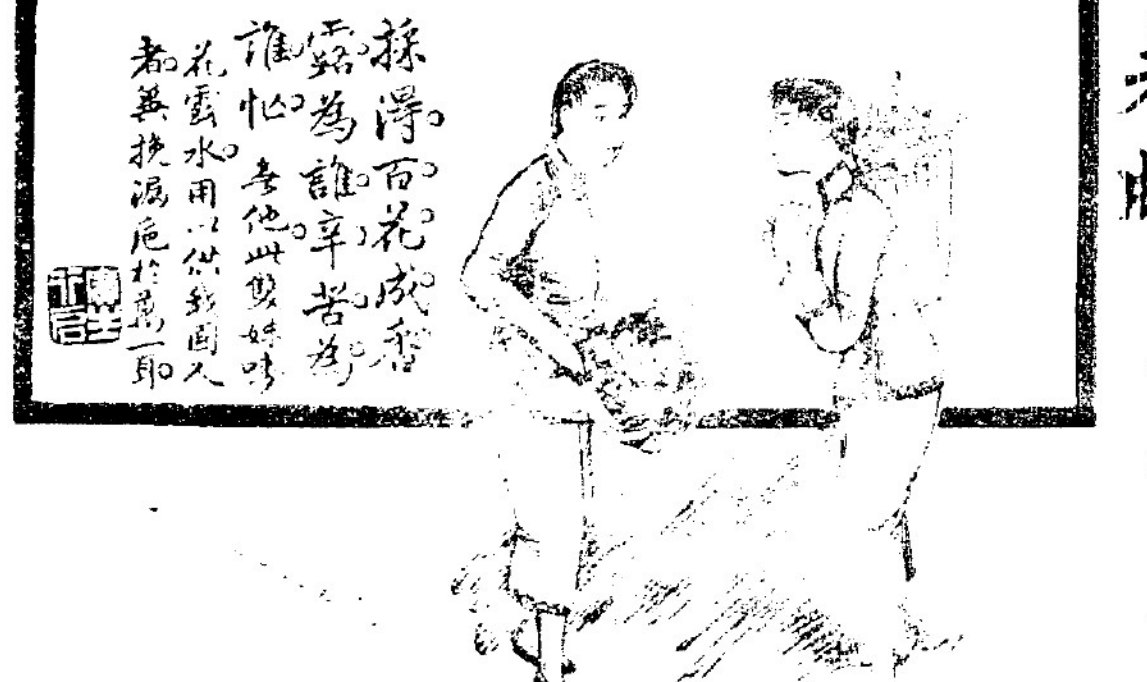 採得百花成香
露為誰辛苦為
誰忙 無他此雙妹嘜
花露水用以供我國人
者冀挽漏巵於萬一耳